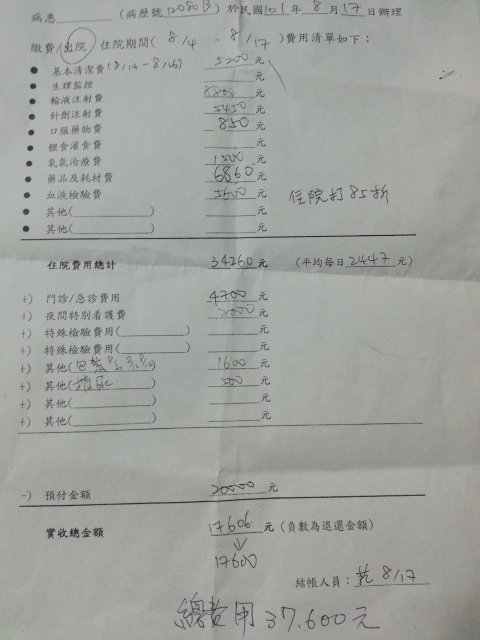 病患________ (病歷號 12080B) 於民國 101 年 8 月 17 日辦理
繳費/出院, 住院期間( 8/4 - 8/17 )費用清單如下：
● 基本清潔費(8/14-8/16) 5200 元
● 生理監控 ____元
● 輸液注射費 8850 元
● 針劑注射費 5450 元
● 口服藥物費 850 元
● 餵食灌食費 ____元
● 氧氣治療費 1500 元
● 藥品及耗材費 6860 元
● 血液檢驗費 5600 元
住院打85折
● 其他(________) ____元
● 其他(________) ____元
住院費用總計 34260 元 (平均每日 2447 元)
+) 門診/急診費用 4700 元
+) 夜間特別看護費 2000 元
+) 特殊檢驗費用(________) ____元
+) 特殊檢驗費用(________) ____元
+) 其他(包紮) 1600 元
+) 其他(________) 500 元
+) 其他(________) ____元
+) 其他(________) ____元
-) 預付金額 20000 元
實收總金額 17606 元 (負數為退還金額)
17600
結帳人員： 8/17
總費用 37,600元